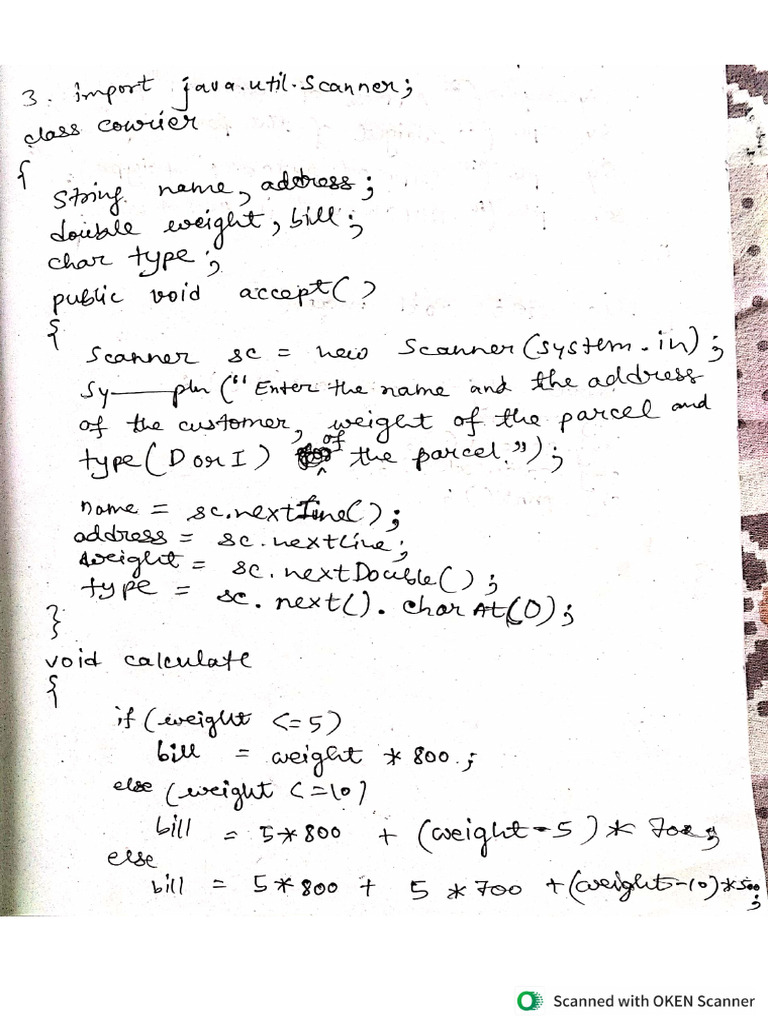 3. import java.util.Scanner;
class courier
{
String name, address;
double weight, bill;
char type;
public void accept()
{
Scanner sc = new Scanner(System.in);
Sy——pln ("Enter the name and the address
of the customer, weight of the parcel and
type(D or I) of the parcel.");
name = sc.nextLine();
address = sc.nextLine;
weight = sc.nextDouble();
type = sc.next().charAt(0);
}
void calculate
{
if (weight <=5)
bill = weight * 800.;
else (weight <=10)
bill = 5*800 + (weight-5) * 700;
else
bill = 5*800 + 5 *700 +(weight-10)*500;
Scanned with OKEN Scanner